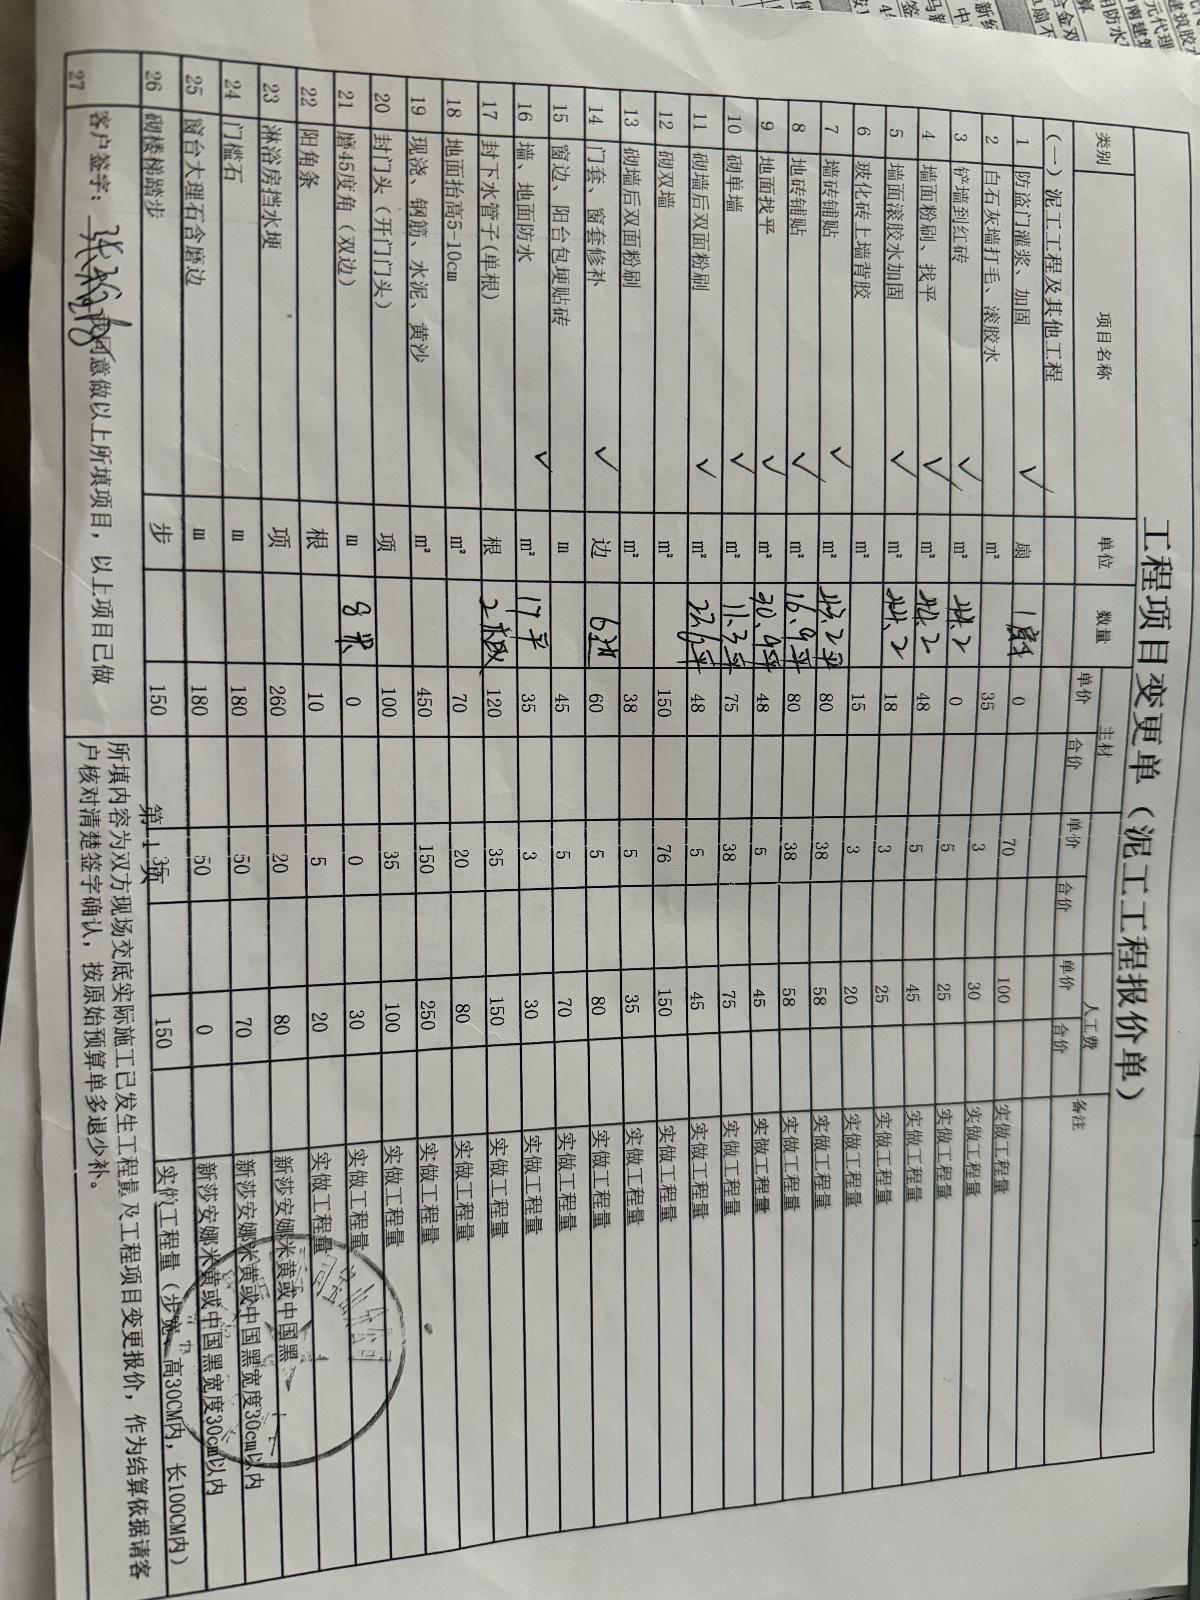 工程项目变更单（泥工工程报价单）
类别 项目名称 单位 数量 主材 人工费 备注
单价 合价 单价 合价 单价 合价
(一)泥工工程及其他工程
1 防盗门灌浆、加固 ✓ 扇 1扇 0 70 100 实做工程量
2 白石灰墙打毛、滚胶水 m² 35 3 30 实做工程量
3 铲墙到红砖 ✓ m² 0 5 25 实做工程量
4 墙面粉刷、找平 ✓ m² 48 5 45 实做工程量
5 墙面滚胶水加固 ✓ m² 18 3 25 实做工程量
6 玻化砖上墙背胶 m² 15 3 20 实做工程量
7 墙砖铺贴 ✓ m² 80 38 58 实做工程量
8 地砖铺贴 ✓ m² 16.9平 80 38 58 实做工程量
9 地面找平 ✓ m² 48 5 45 实做工程量
10 砌单墙 ✓ m² 11.3平 75 38 75 实做工程量
11 砌墙后双面粉刷 ✓ m² 22.6平 48 5 45 实做工程量
12 砌双墙 m² 150 76 150 实做工程量
13 砌墙后双面粉刷 m² 38 5 35 实做工程量
14 门套、窗套修补 ✓ 边 60 5 80 实做工程量
15 窗边、阳台包埂贴砖 m 45 5 70 实做工程量
16 墙、地面防水 ✓ m² 17平 35 3 30 实做工程量
17 封下水管子(单根) 根 2根 120 35 150 实做工程量
18 地面抬高5-10cm m² 70 20 80 实做工程量
19 现浇、钢筋、水泥、黄沙 m² 450 150 250 实做工程量
20 封门头（开门门头） 项 100 35 100 实做工程量
21 磨45度角（双边） m 8米 0 0 30 实做工程量
22 阳角条 根 10 5 20 实做工程量
23 淋浴房挡水埂 项 260 20 80 新莎安娜米黄或中国黑
24 门槛石 m 180 50 70 新莎安娜米黄或中国黑宽度30cm以内
25 窗台大理石含磨边 m 180 50 0 新莎安娜米黄或中国黑宽度30cm以内
26 砌楼梯踏步 步 150 35 150 实做工程量（步宽、高30CM内，长100CM内）
第 1 页
27 客户签字： 我同意做以上所填项目，以上项目已做
所填内容为双方现场交底实际施工已发生工程量及工程项目变更报价，作为结算依据请客
户核对清楚签字确认，按原始预算单多退少补。